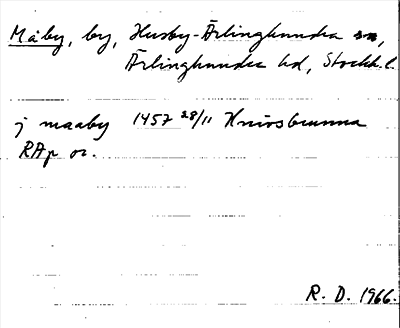 Måby, by, Husby-Ärlinghundra sn,
Ärlinghundra hd, Stockh. l.
j maaby 1457 28/11 Knivsbrunna
RAp or.
R. D. 1966.